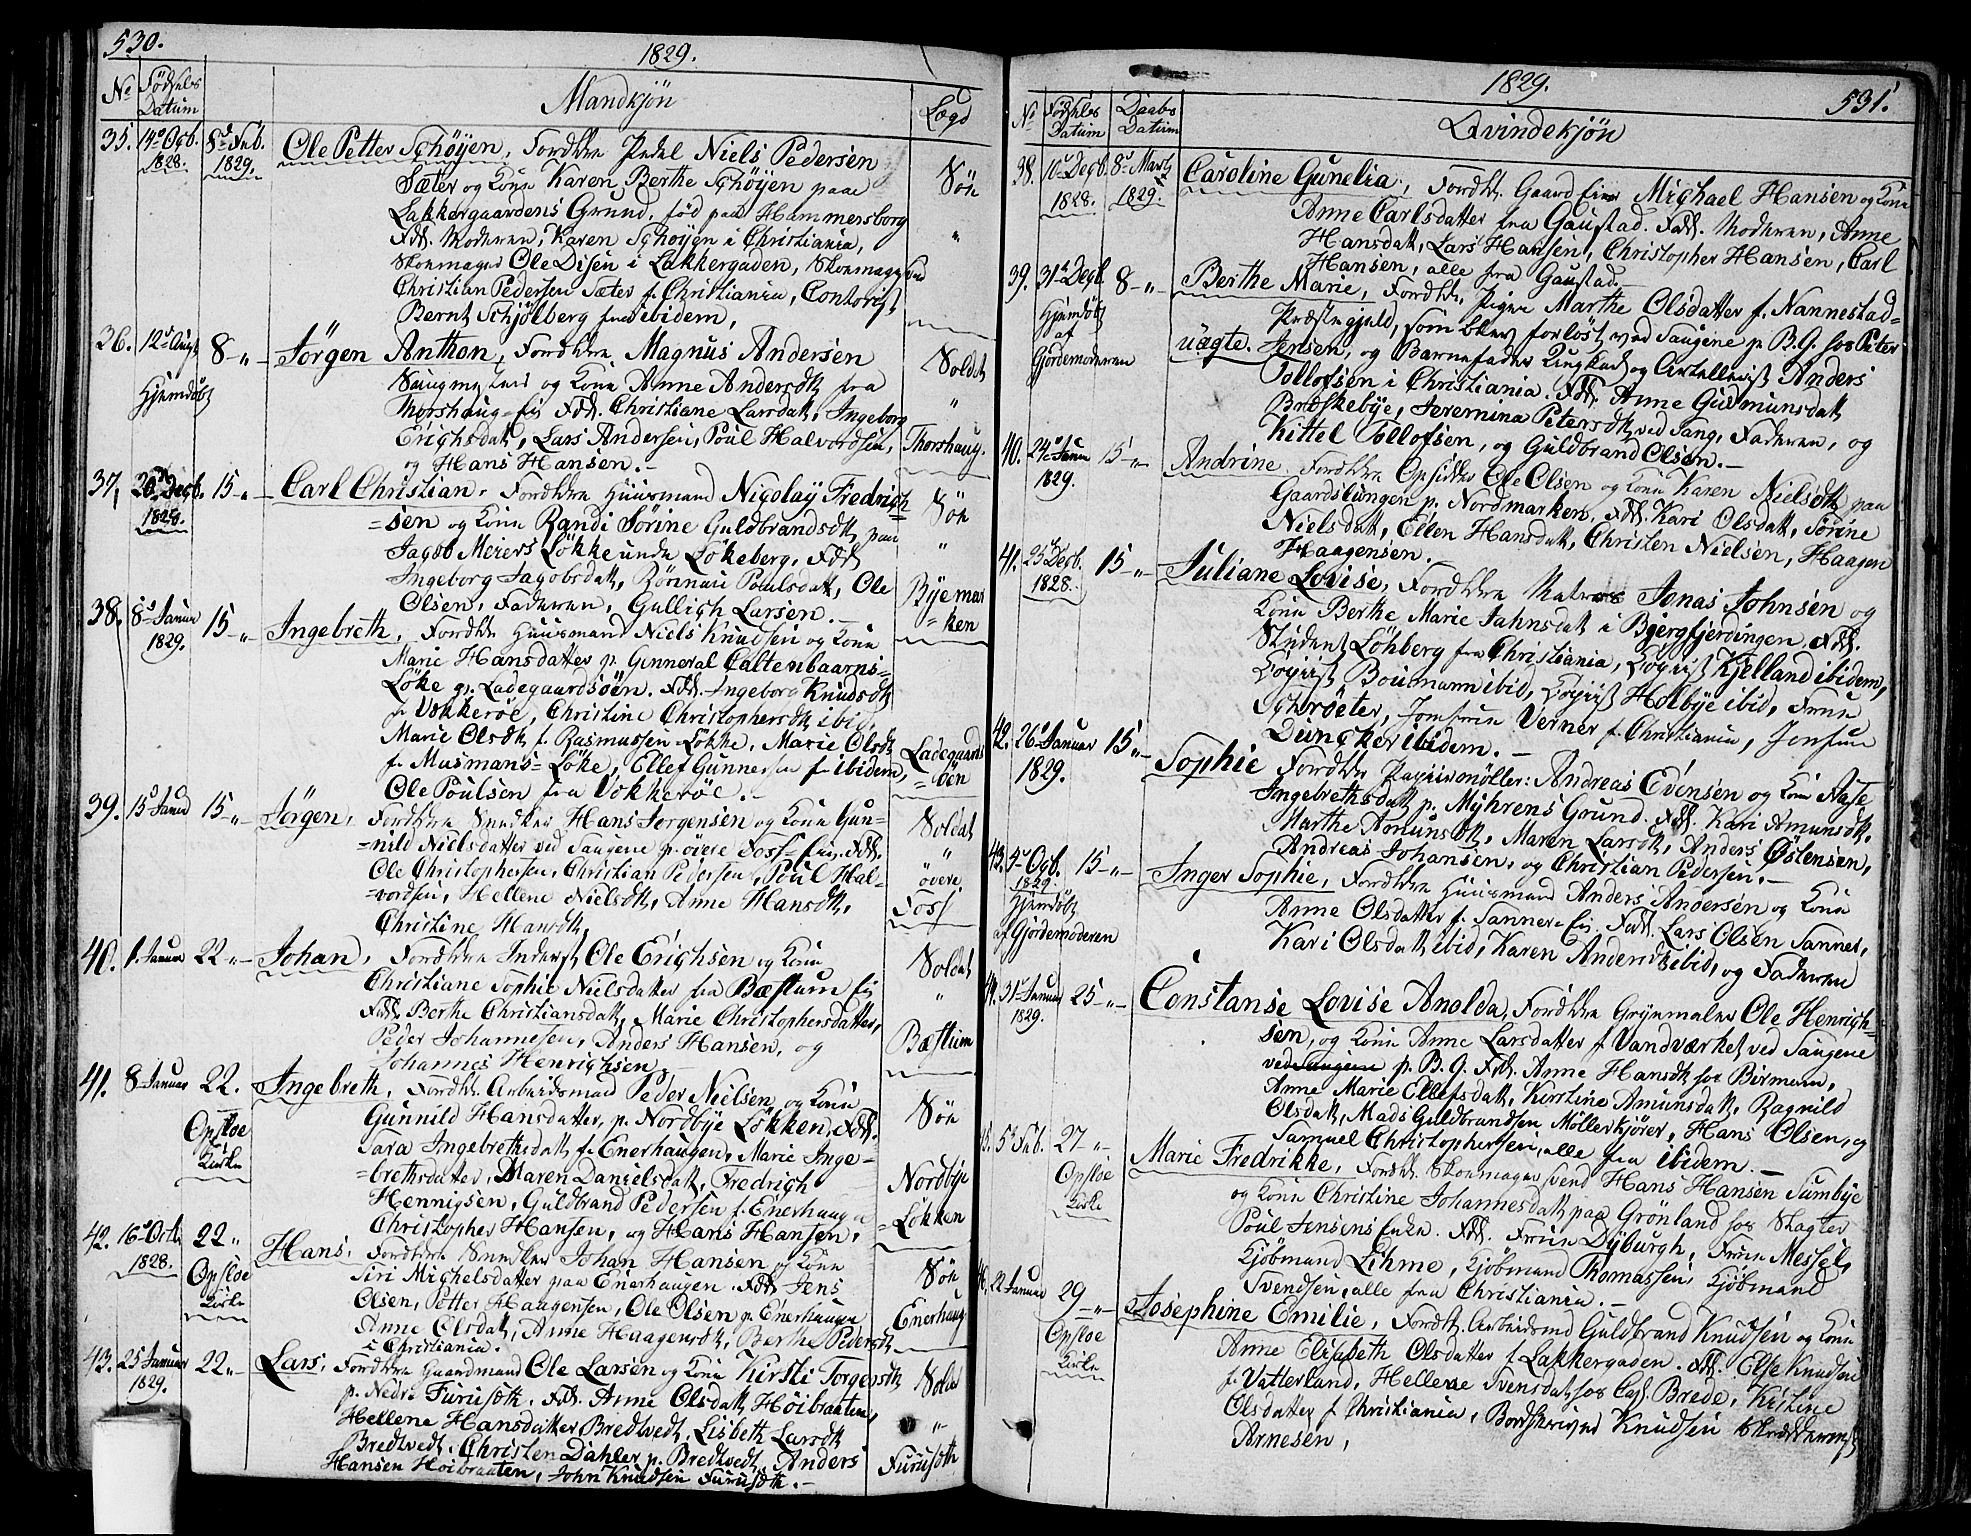 530.
1829.
No Fødsels Datum
Mandkjøn
Lægd
35. 14de Ocb. 1828. 8de Feb. 1829.
Ole Petter Schøyen, Forældre Pedel Niels Pedersen
Sæter og Kone Karen Berthe Schøyen paa
Lakkergaardens Grund, fød paa Hammersborg
Fdd. Moderen, Karen Schøyen i Christiania,
Skoemager Ole Disen i Lakkergaden, Skoemagersvend
Christian Pedersen Sæter f. Christiania, Contorist
Bernt Schjølberg fra ibidem,
Søn
"
36. 12te Hjemdøbt 8-"-
Jörgen Anthon, Forældre Magnus Andersen
Saugmester og Kone Anne Andersdt fra
Thorshaug-Eie Fdd. Christiane Larsdat, Ingeborg
Erichsdat, Lars Andersen, Poul Halvordsen,
og Hans Hansen.-
Soldat
"
Thorshaug.
37, Decb. 1828. 15-"-
Carl Christian. Forældre Huusmand Nicolay Fredrich
=sen og Kone Randi Sörine Guldbrandsdt, paa
Jacob Meiers Løkke under Løkeberg, Fdd.
Ingeborg Jacobsdat, Rønnau Poulsdat, Ole
Olsen, Faderen, Gullich Larsen.
Søn
"
Byemar
=ken
38. 8de Januar 1829. 15-"-
Ingebreth, Forældre Huusmand Niels Knudsen og Kone
Marie Hansdatter p. Ginneral Caltenbaarns=
Løke p. Ladegaardsöen. Fdd. Ingeborg Knudsdt
fr Vækkerøe, Christine Christophersdt ibid,
Marie Olsdt f. Rasmussen-Løkke, Marie Olsdt
f. Musmans=Løke, Ellef Gunnersen f. ibidem,
Ole Poulsen fra Vækkerøe.-
Ladegaards
=öen
39. 15de Januar 15-"-
Jörgen, Forældre Snedker Hans Jorgensen og Kone Gun=
=nild Nielsdatter ved Saugene p. øvere Foss-Eie. Fdd.
Ole Christophersen, Christian Pedersen, Poul Hal=
=vordsen, Hellene Nielsdt, Anne Hansdt,
Christine Hansdt,
Soldat
"
övere
Foss
40. 1. Januar 22-"-
Johan, Forældre Inderst Ole Erichsen og Kone
Christiane Sophie Nielsdatter fra Bæstum Eie
Fdd. Berthe Christiansdat, Marie Christophersdatter,
Peder Johannesen, Anders Hansen, og
Johannes Henrichsen,
Soldat
"
Bæstum
41. 8 Januar 22. Opsloe Kirke
Ingebreth, Forældre Arbeidsmand Peder Nielsen og Kone
Gunnild Hansdatter, p. Nordbye Løkken, Fdd.
Sara Ingebrethsdat f. Enerhaugen, Marie Inge=
=brethsdatter, Maren Danielsdat, Fredrich
Hennigsen, Guldbrand Pedersen f. Enerhaugen
Christopher Hansen, og Hans Hansen,
Søn
Nordbye
=Løkken
42. 16de Octb. 1828. 22" Opsloe Kirke
Hans, Forældre Snedker Johan Hansen og Kone
Siri Michelsdatter paa Enerhaugen. Fdd. Jens
Olsen, Petter Haagensen, Ole Olsen p. Enerhaugen
Anne Olsdat, Anne Haagensdt, Berthe Pedersdt
i Christiania.
Søn
Enerhaug
43. 25 Januar 1829. 22"-
Lars, Forældre Gaardmand Ole Larsen og Kone Kirsti Torgersdt
p. Nedre Furusöth. Fdd. Anne Olsdat Høibraaten,
Hellene Hansdatter Bredtvedt, Lisbeth Larsdt
Bredtvedt, Christen Dahler p. Bredtvedt, Anders
Hansen Høibraaten, John Knudsen Furusöth.-
Soldat
"
Furusöth
1829.
531.
No Fødsels Datum Daabs Datum
Qvindekjøn
38. 10de Decb. 1828. 8de Marts 1829.
Caroline Gunelia, Forældr. Gaard Eier Michael Hansen og Kone
Anne Carlsdatter fra Gaustad. Fdd. Moderen, Anne
Hansdat, Lars Hansen, Christopher Hansen, Carl
Hansen, alle fra Gaustad.-
39. 31te Decb. Hjemdøbt af Gjordemoderen 8-"-
Berthe Marie, Forældre Pigen Marthe Olsdatter f. Nannestad=
Præstegjeld, som blev forløst ved Saugene p. B.G. hos Peter
uægte. Jensen, og Barnefader Ungkarl og Artellerist Anders
Tollofsen i Christiania. Fdd. Anne Gudmunsdat
Bredskebye, Jeremina Petersdt ved Saug, Faderen, og
Kittel Tollofsen, og Guldbrand Olsen.-
40. 24de Janu 1829. 15-"-
Andrine, Forældre Opsidder Ole Olsen og Kone Karen Nielsdt paa
Gaardslungen p. Nordmarken. Fdd. Kari Olsdat, Sörine
Nielsdat, Ellen Hansdat, Christen Nielsen, Haagen
Haagensen.
41. 25de Decb. 1828. 15-"-
Juliane Lovise, Forældre Matros Jonas Johnsen og
Kone Berthe Marie Jahnsdat i Bjergfjerdingen, Fdd.
Student Löhberg fra Christiania, Logist Kjelland ibidem,
Boumann ibid, Holbye ibid, Frue
Schröeter, Jomfrue Verner f. Christiania, Jomfrue
Duncker ibidem.-
42. 26de Januar 1829. 15"-
Sophie Forældre Papiirmøller: Andreas Evensen og Kone Aase
Ingebrethsdat p. Myhrens Grund. Fdd. Kari Amunsdt,
Marthe Amunsdt, Maren Larsdt, Anders Østensen,
Andreas Johansen, og Christian Pedersen.-
43. Ocb. 1829. Hjemdøbt af Gjordemoderen 15-"-
Inger Sophie, Forældre Huusmand Anders Andersen og Kone
Anne Olsdatter f. Sanner-Eie. Fdd. Lars Olsen Sanner,
Kari Olsdat ibid, Karen Andersdt ibid, og Faderen
44. 31te Januar 1829. 25-"-
Constanse Lovise Anolda, Forældre Grynmaler Ole Henrich=
sen, og Kone Anne Larsdatter f. Vandværket ved Saugene
ved Saugene p. B.G. Fdd. Anne Hansdt hos Birmann,
Anne Marie Ellefsdat, Kirstine Amunsdat, Ragnild
Olsdat, Mads Guldbrandsen Møllerkjörer, Hans Olsen, og
Samuel Christophersen, alle fra ibidem.-
45. 5te Feb. 27" Opsloe Kirke
Marie Fredrikke, Forældr. Skoemager Svend Hans Hansen Sumbye
og Kone Christine Johannesdat paa Grönland hos Slagter
Poul Jensens Enke. Fdd. Frue Dyburgh, Frue Messel,
Kjöbmand Lihme, Kjöbmand Thomassen, Kjöbmand
Svendsen, alle fra Christiania.-
46. 22 Januar 29-"- Opsloe Kirke
Josephine Emilie, Forældr. Arbeidsmd Guldbrand Knudsen og Kone
Anne Elisabeth Olsdatter f. Lakkergaden. Fdd. Else Knudsen
f. Vatterland, Hellene Svensdat hos Capt. Brede, Kirstine
Olsdatter f. Christiania, Bordskriver Knudsen
Arnesen,